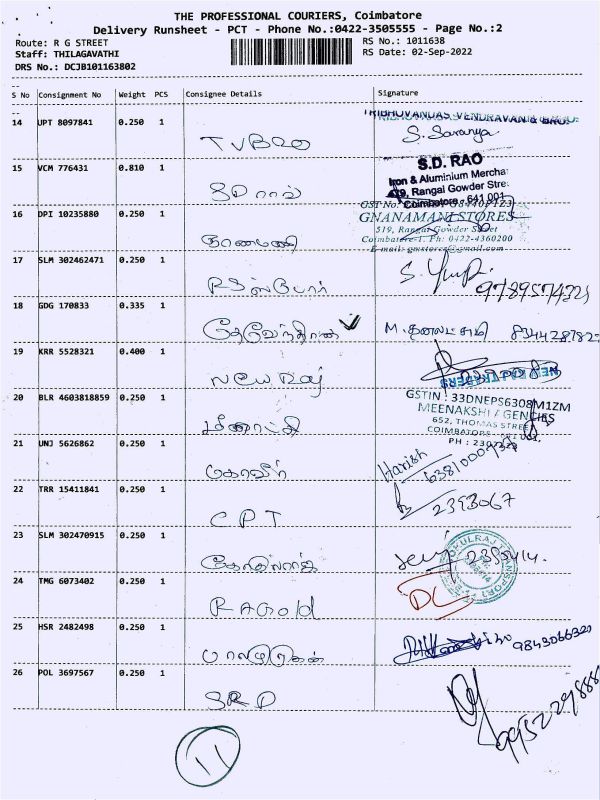 THE PROFESSIONAL COURIERS, Coimbatore
Delivery Runsheet - PCT - Phone No.:0422-3505555 - Page No.:2
Route: R G STREET
RS No.: 1011638
Staff: THILAGAVATHI
RS Date: 02-Sep-2022
DRS No.: DCJB101163802
S No Consignment No Weight PCS Consignee Details Signature
14 UPT 8097841 0.250 1
TRIBHOVANDAS VENDRAVAN & BROS.
TVBRO S. Saranya
15 VCM 776431 0.810 1
S.D. RAO
Iron & Aluminium Merchant
SD ராவ்
419, Rangai Gowder Street
Coimbatore - 641 001
16 DPI 10235880 0.250 1
GNANAMANI STORES
519, Rangai Gowder Street
ஞானமணி
Coimbatore-1. Ph: 0422-4360200
E-mail: gmstores@gmail.com
17 SLM 302462471 0.250 1
PS ஸ்டோர் 9789574321
18 GDG 170833 0.335 1
தேவேந்திரன் M. தனலட்சுமி
19 KRR 5528321 0.400 1
New Raj
20 BLR 4603818859 0.250 1
GSTIN : 33DNEPS6308M1ZM
MEENAKSHI AGENCIES
652, THOMAS STREET
மீனாட்சி
COIMBATORE - 641 001.
21 UNJ 5626862 0.250 1
PH :
Harish
22 TRR 15411841 0.250 1
CPT 2393067
23 SLM 302470915 0.250 1
கோகுல்ராஜ்
24 TMG 6073402 0.250 1
RA Gold DL
25 HSR 2482498 0.250 1
பாலமுருகன் 9843066320
26 POL 3697567 0.250 1
SRD
11